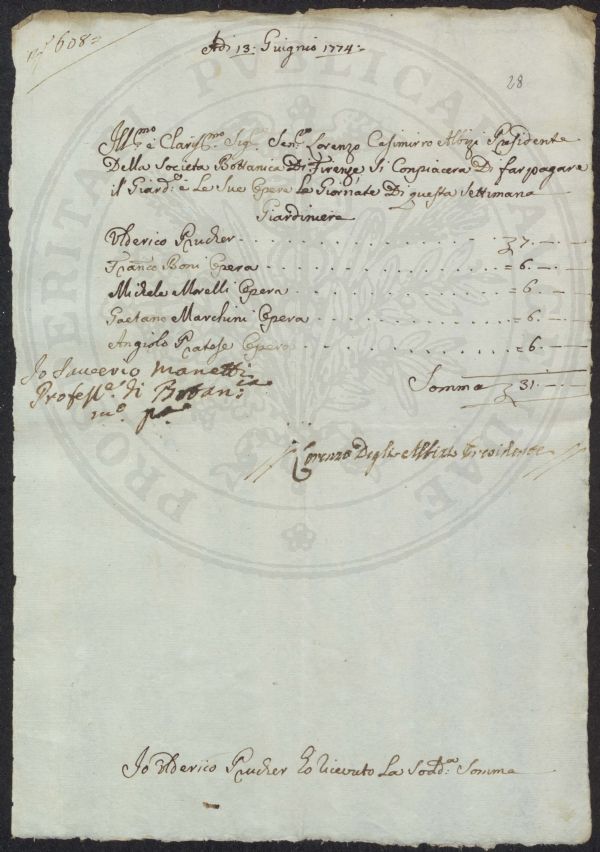 n° 608=
Adi 13: Giugnio 1774:
28
Ill:mo e Clariss:mo Sig:r Sen:re Lorenzo Casimirro Albizi Presidente
Della Societa Bottanica Di Firenze Si Conpiacera Di far pagare
il Giard:e e Le Sue Opere Le Giornate Di questa Settimana
Giardiniere
Ulderico Prucher 7.—.—
Franco Boni Opera =6.—.—
Michele Morelli Opera =6.—.—
Gaetano Marchini Opera =6.—.—
Angiolo Pratese Opera =6.—
Io Saverio Manetti
Profess:e di Botanica
Somma 31.—
Lorenzo Degli Albizi Presidente
Io Ulderico Prucher Ho ricevuto La Sodd:a Somma
PROSPERITATI PUBLICAE AUGENDAE